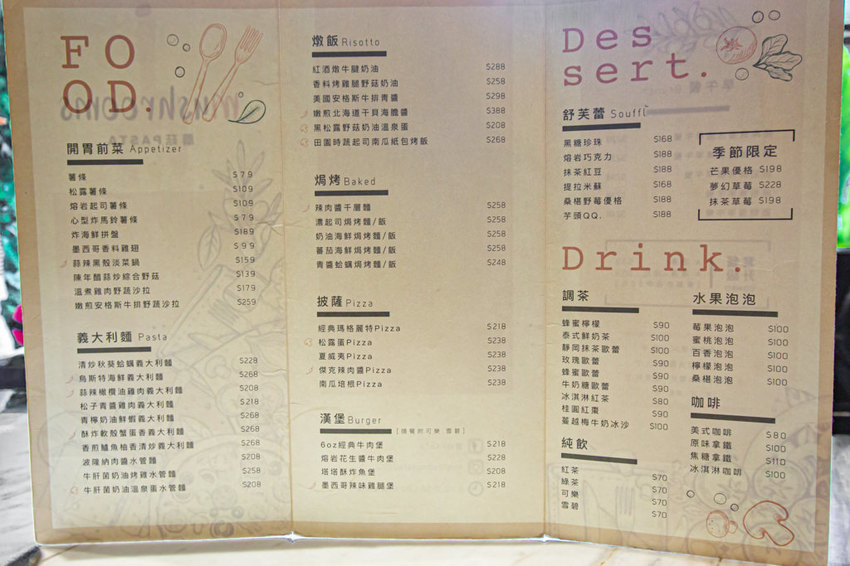 FO
OD.
開胃前菜 Appetizer
薯條 $79
松露薯條 $109
熔岩起司薯條 $109
心型炸馬鈴薯條 $79
炸海鮮拼盤 $189
墨西哥香料雞翅 $99
蒜辣黑殼淡菜鍋 $159
陳年醋蒜炒綜合野菇 $139
溫煮雞肉野蔬沙拉 $179
嫩煎安格斯牛排野蔬沙拉 $259
義大利麵 Pasta
清炒秋葵蛤蠣義大利麵 $228
烏斯特海鮮義大利麵 $268
蒜辣橄欖油雞肉義大利麵 $208
松子青醬雞肉義大利麵 $218
青檸奶油鮮蝦義大利麵 $268
酥炸軟殼蟹蛋香義大利麵 $268
香煎鱸魚柚香清炒義大利麵 $268
波隆納肉醬水管麵 $208
牛肝菌奶油烤雞水管麵 $258
牛肝菌奶油溫泉蛋水管麵 $208
燉飯 Risotto
紅酒燉牛腱奶油 $288
香料烤雞腿野菇奶油 $258
美國安格斯牛排青醬 $298
嫩煎北海道干貝海膽醬 $388
黑松露野菇奶油溫泉蛋 $208
田園時蔬起司南瓜紙包烤飯 $268
焗烤 Baked
辣肉醬千層麵 $258
濃起司焗烤麵/飯 $258
奶油海鮮焗烤麵/飯 $258
蕃茄海鮮焗烤麵/飯 $258
青醬蛤蠣焗烤麵/飯 $248
披薩 Pizza
經典瑪格麗特Pizza $218
松露蛋Pizza $238
夏威夷Pizza $238
傑克辣肉醬Pizza $238
南瓜培根Pizza $238
漢堡 Burger
6oz經典牛肉堡 $218
熔岩花生醬牛肉堡 $228
塔塔酥炸魚堡 $208
墨西哥辣味雞腿堡 $218
Des
sert.
舒芙蕾 Souffl
黑糖珍珠 $168
熔岩巧克力 $188
抹茶紅豆 $188
提拉米蘇 $168
桑椹野莓優格 $188
芋頭QQ. $188
季節限定
芒果優格 $198
夢幻草莓 $228
抹茶草莓 $198
Drink.
調茶
蜂蜜檸檬 $90
泰式鮮奶茶 $100
靜岡抹茶歐蕾 $100
玫瑰歐蕾 $90
蜂蜜歐蕾 $90
牛奶糖歐蕾 $90
冰淇淋紅茶 $80
桂圓紅棗 $90
蔓越梅牛奶冰沙 $100
純飲
紅茶 $70
綠茶 $70
可樂 $70
雪碧 $70
水果泡泡
莓果泡泡 $100
蜜桃泡泡 $100
百香泡泡 $100
檸檬泡泡 $100
桑椹泡泡 $100
咖啡
美式咖啡 $80
原味拿鐵 $100
焦糖拿鐵 $110
冰淇淋咖啡 $100